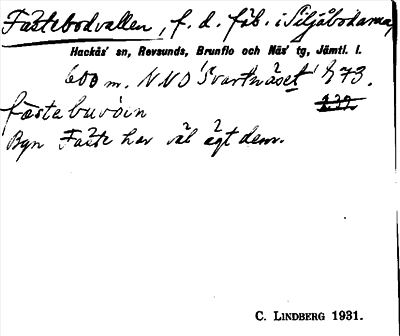 Fästebodvallen, f. d. fäb. i Siljåbodarna,
Hackås' sn, Revsunds, Brunflo och Näs' tg, Jämtl. l.
600 m. NNO 'Svartnäset' h 73.
fæstebuvöin
1.39.
Byn Fäste har väl ägt dem.
C. LINDBERG 1931.